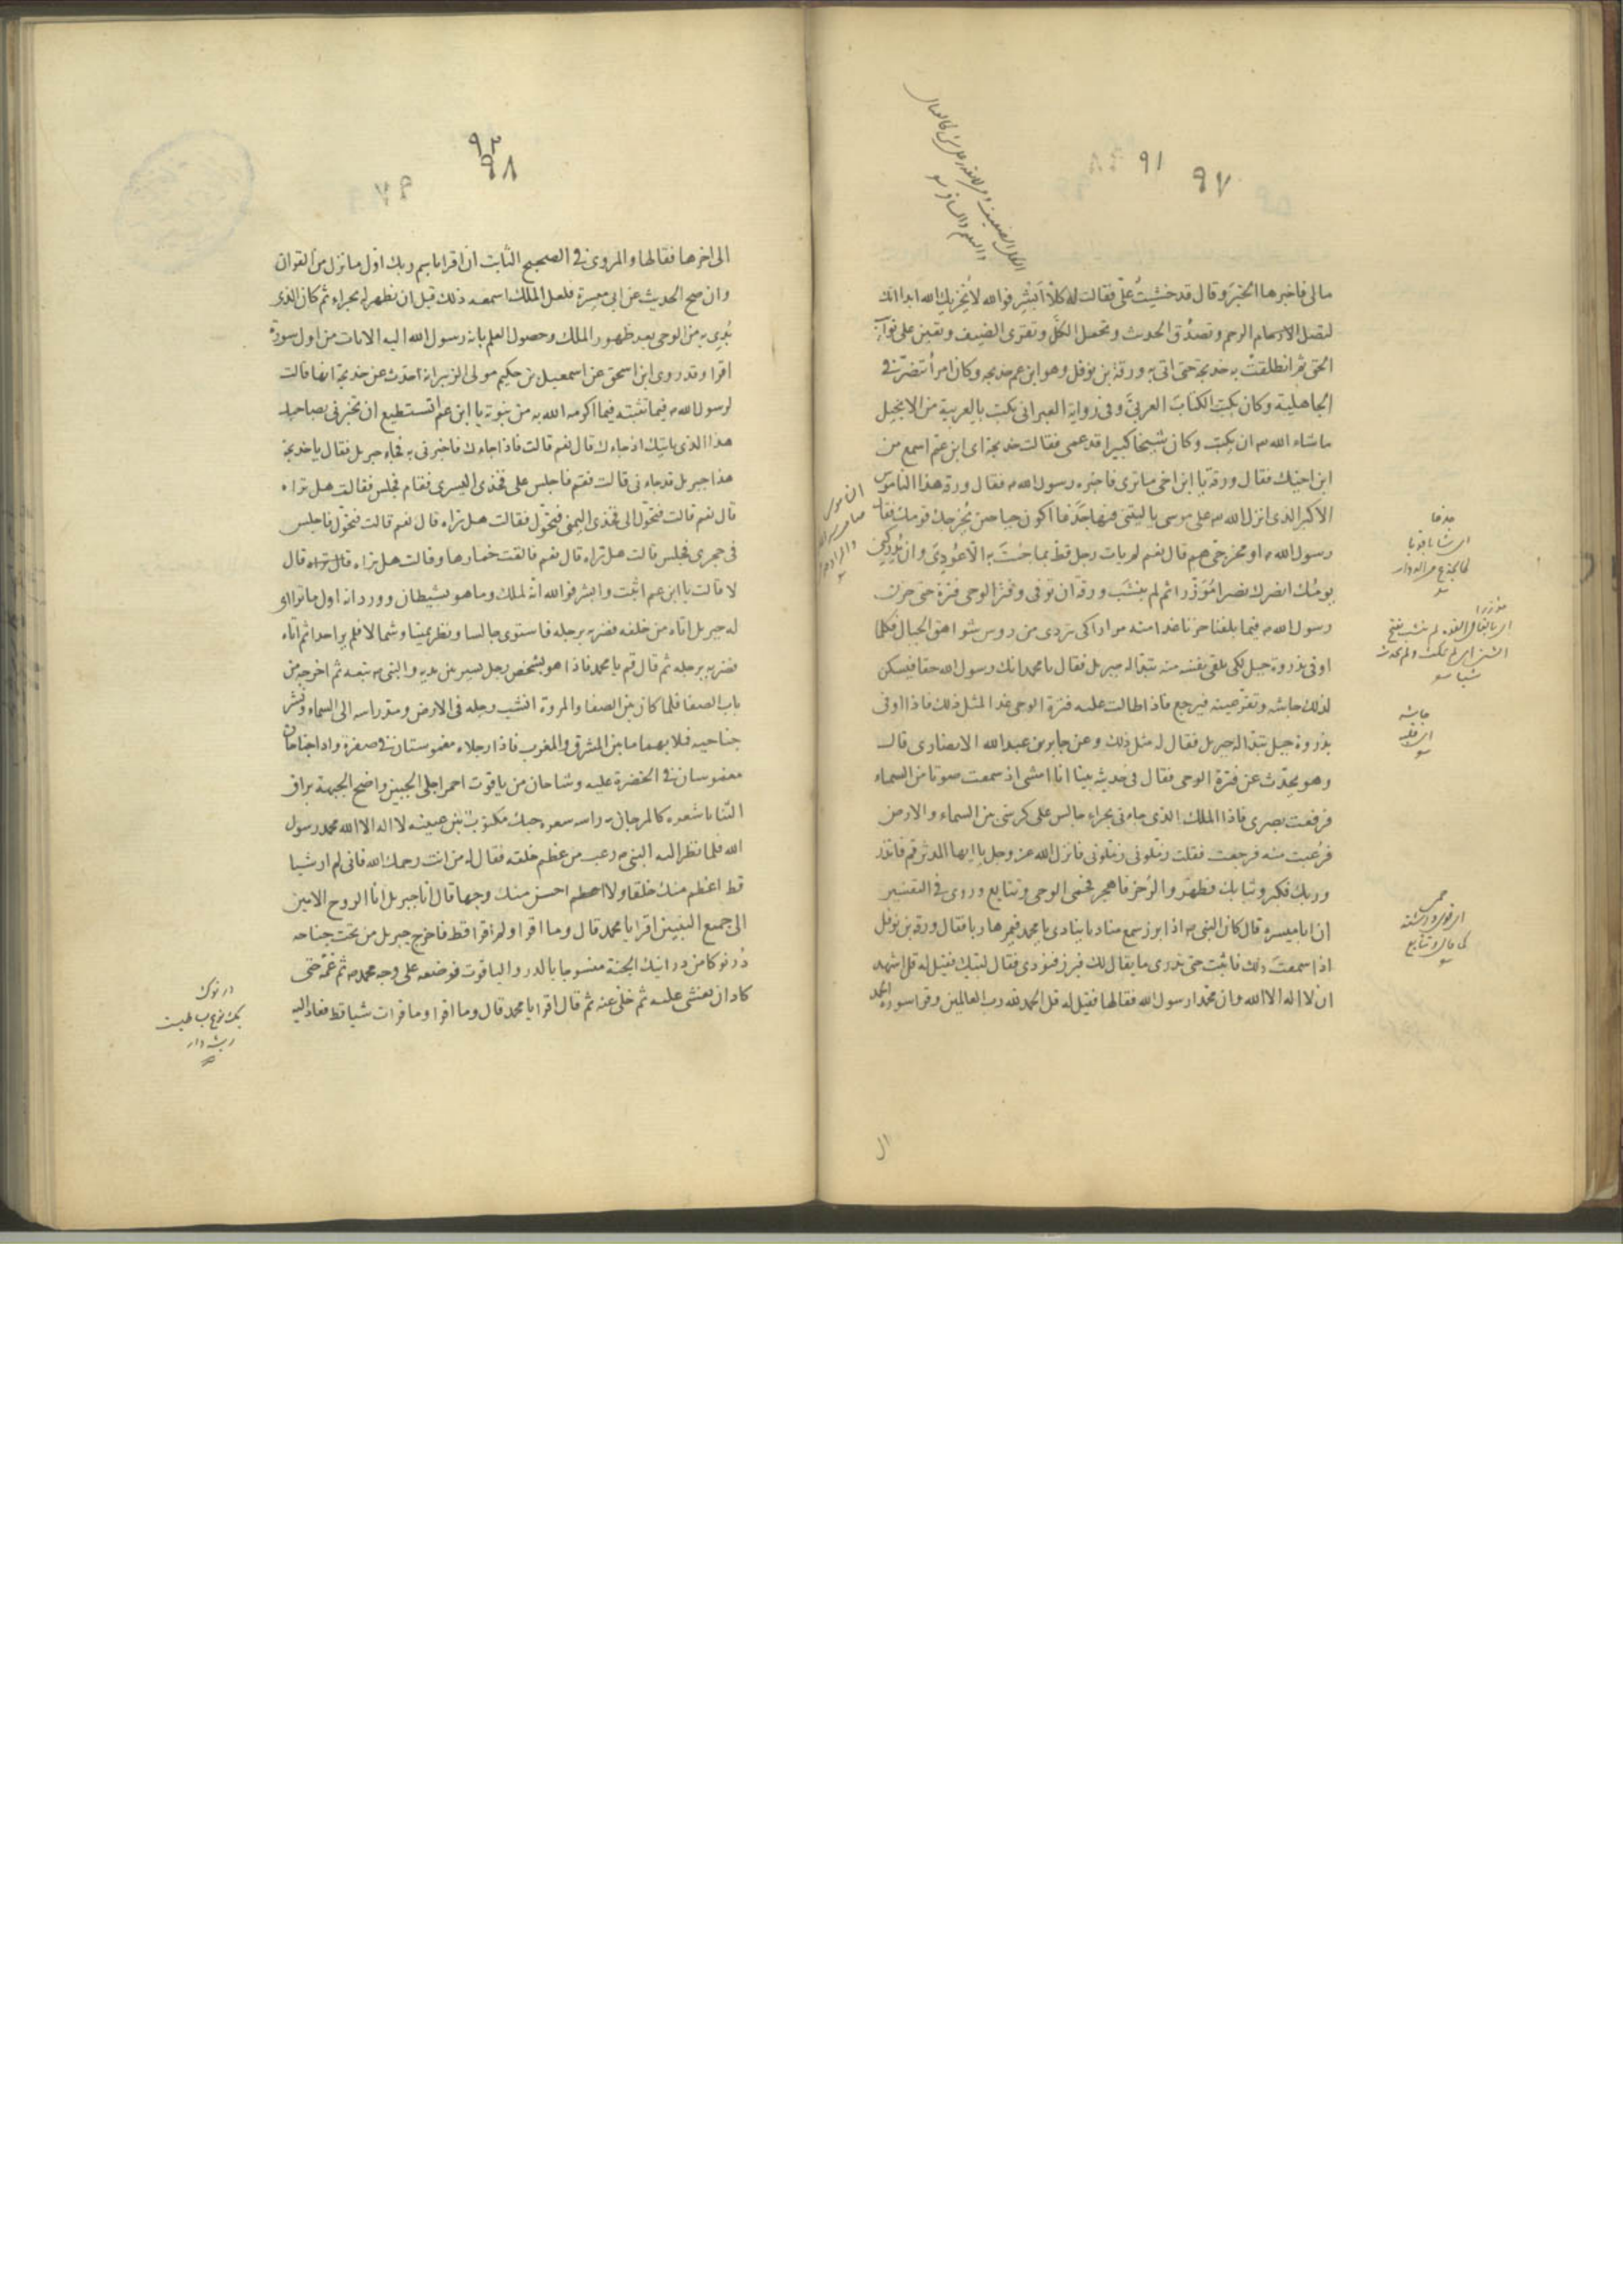 ٩١ ٩٧
مالى فاخبرها الخبر وقال قد خشيت علىّ فقالت له كلا ابشر فوالله لا يخزيك الله ابدا انك
لتصل الرحم وتصدق الحديث وتحمل الكلّ وتقرى الضيف وتعين على نوائب
الحق ثم انطلقت به خديجة حتى اتى به ورقة بن نوفل وهو ابن عم خديجه وكان امرأ تنصّر فى
الجاهلية وكان يكتب الكتاب العربىّ وفى رواية العبرانى يكتب بالعربية من الانجيل
ما شاء الله ان يكتب وكان شيخا كبيرا قد عمى فقالت خديجة اى ابن عم اسمع من
ابن اخيك فقال ورقة يا ابن اخى ما ترى فاخبره رسول الله فقال ورقه هذا الناموس
الاكبر الذى انزل الله على موسى يا ليتنى فيها جذعا اكون حيا حين يخرجك قومك فقال
رسول الله او مخرجىّ هم قال نعم لم يات رجل قط بما جئتَ به الا عُودِىَ وان يُدركنى
يومُك انصرك نصرا مؤزّرا ثم لم ينشَب ورقة ان توفى وفتر الوحى فترة حتى حزن
رسول الله فيما بلغنا حزنا غدا منه مرارا كى يتردى من روس شواهق الجبال فكلما
اوفى بذروة جبل لكى يلقى نفسه منه تبدّا له جبريل فقال يا محمد انك رسول الله حقا فيسكن
لذلك جاشه وتقرّ عينه فيرجع فاذا طالت عليه فترة الوحى غدا لمثل ذلك فاذا اوفى
بذروة جبل تبدّا له جبريل فقال له مثل ذلك وعن جابر بن عبدالله الانصارى قال
وهو يحدّث عن فترة الوحى فقال فى حديثه بينا انا امشى اذ سمعت صوتا من السماء
فرفعت بصرى فاذا الملك الذى جاءنى بحراء جالس على كرسى بين السماء والارض
فرُعبت منه فرجعت فقلت زمّلونى زمّلونى فانزل الله عز وجل يا ايها المدثر قم فانذر
وربك فكبر وثيابك فطهر والرُجز فاهجر فحمى الوحى وتتابع وروى فى التفسير
ان ابا ميسره قال كان النبى اذا برز سمع مناديا ينادى يا محمد فيمر هاربا فقال ورقة بن نوفل
اذا سمعتَ ذلك فاثبت حتى تدرى ما يقال لك فبرز فنودى فقال لبّيك فقيل له قل اشهد
ان لا اله الا الله وان محمّدا رسول الله فقالها فقيل له قل الحمد لله رب العالمين وقرا سورة الحمد
جذعا
مؤزرا
جاشه
٩٢ ٩٨
الى اخرها فقالها والمروى فى الصحيح الثابت ان اقرا باسم ربك اول ما نزل من القران
وان صح الحديث عن ابى ميسرة فلعل الملك اسمعه ذلك قبل ان يظهر له بحراء ثم كان الذى
بُدِى به من الوحى بعد ظهور الملك وحصول العلم بانه رسول الله اليه الايات من اول سورة
اقرا وقد روى ابن اسحق عن اسمعيل بن حكيم مولى الزبير انه احدث عن خديجة انها قالت
لرسول الله فيما تثبته فيما اكرمه الله به من نبوته يا ابن عم اتستطيع ان تخبرنى بصاحبك
هذا الذى ياتيك اذ جاءك قال نعم قالت فاذا جاءك فاخبرنى به فجاء جبريل فقال يا خديجة
هذا جبريل قد جاءنى قالت فقم فاجلس على فخذى اليسرى فقام فجلس فقالت هل تراه
قال نعم قالت فتحوّل الى فخذى اليمنى فتحوّل فقالت هل تراه قال نعم قالت فتحوّل فاجلس
فى حجرى فجلس قالت هل تراه قال نعم فالقت خمارها وقالت هل تراه قال
لا قالت يا ابن عم اثبت وابشر فوالله انه لملك وما هو بشيطان وورد انه اول ما تراى
له جبريل اتاه من خلفه فضربه برجله فاستوى جالسا ونظر يمينا وشمالا فلم ير احدا ثم اتاه
فضربه برجله ثم قال قم يا محمد فاذا هو بشخص رجل يسير بين يديه والنبى يتبعه ثم اخرجه من
باب الصفا فلما كان بين الصفا والمروة انتشب رجله فى الارض ومدّ راسه الى السماء ونشر
جناحيه فملا بهما ما بين المشرق والمغرب فاذا رجلاه مغموستان فى صفرة واذا جناحان
مغموسان فى الخضرة عليه وشاحان من ياقوت احمر اجلى الجبين واضح الجبهة براق
الثنايا شعره كالمرجان راسه حبك مكتوب بين عينيه لا اله الا الله محمد رسول
الله فلما نظر اليه النبى رعب من عظم خلقه فقال له من انت رحمك الله فانى لم ار شيا
قط اعظم منك خلقا ولا احسن منك وجها قال انا جبريل انا الروح الامين
الى جميع النبيين اقرا يا محمد قال وما اقرا ولم اقرا قط فاخرج جبريل من تحت جناحه
دُرنوكا من درانيك الجنة منسوجا بالدر والياقوت فوضعه على وجه محمد ثم غمّه حتى
كاد ان يغشى عليه ثم خلى عنه ثم قال اقرا يا محمد قال وما اقرا وما قرات شيا قط فعاد اليه
درنوك